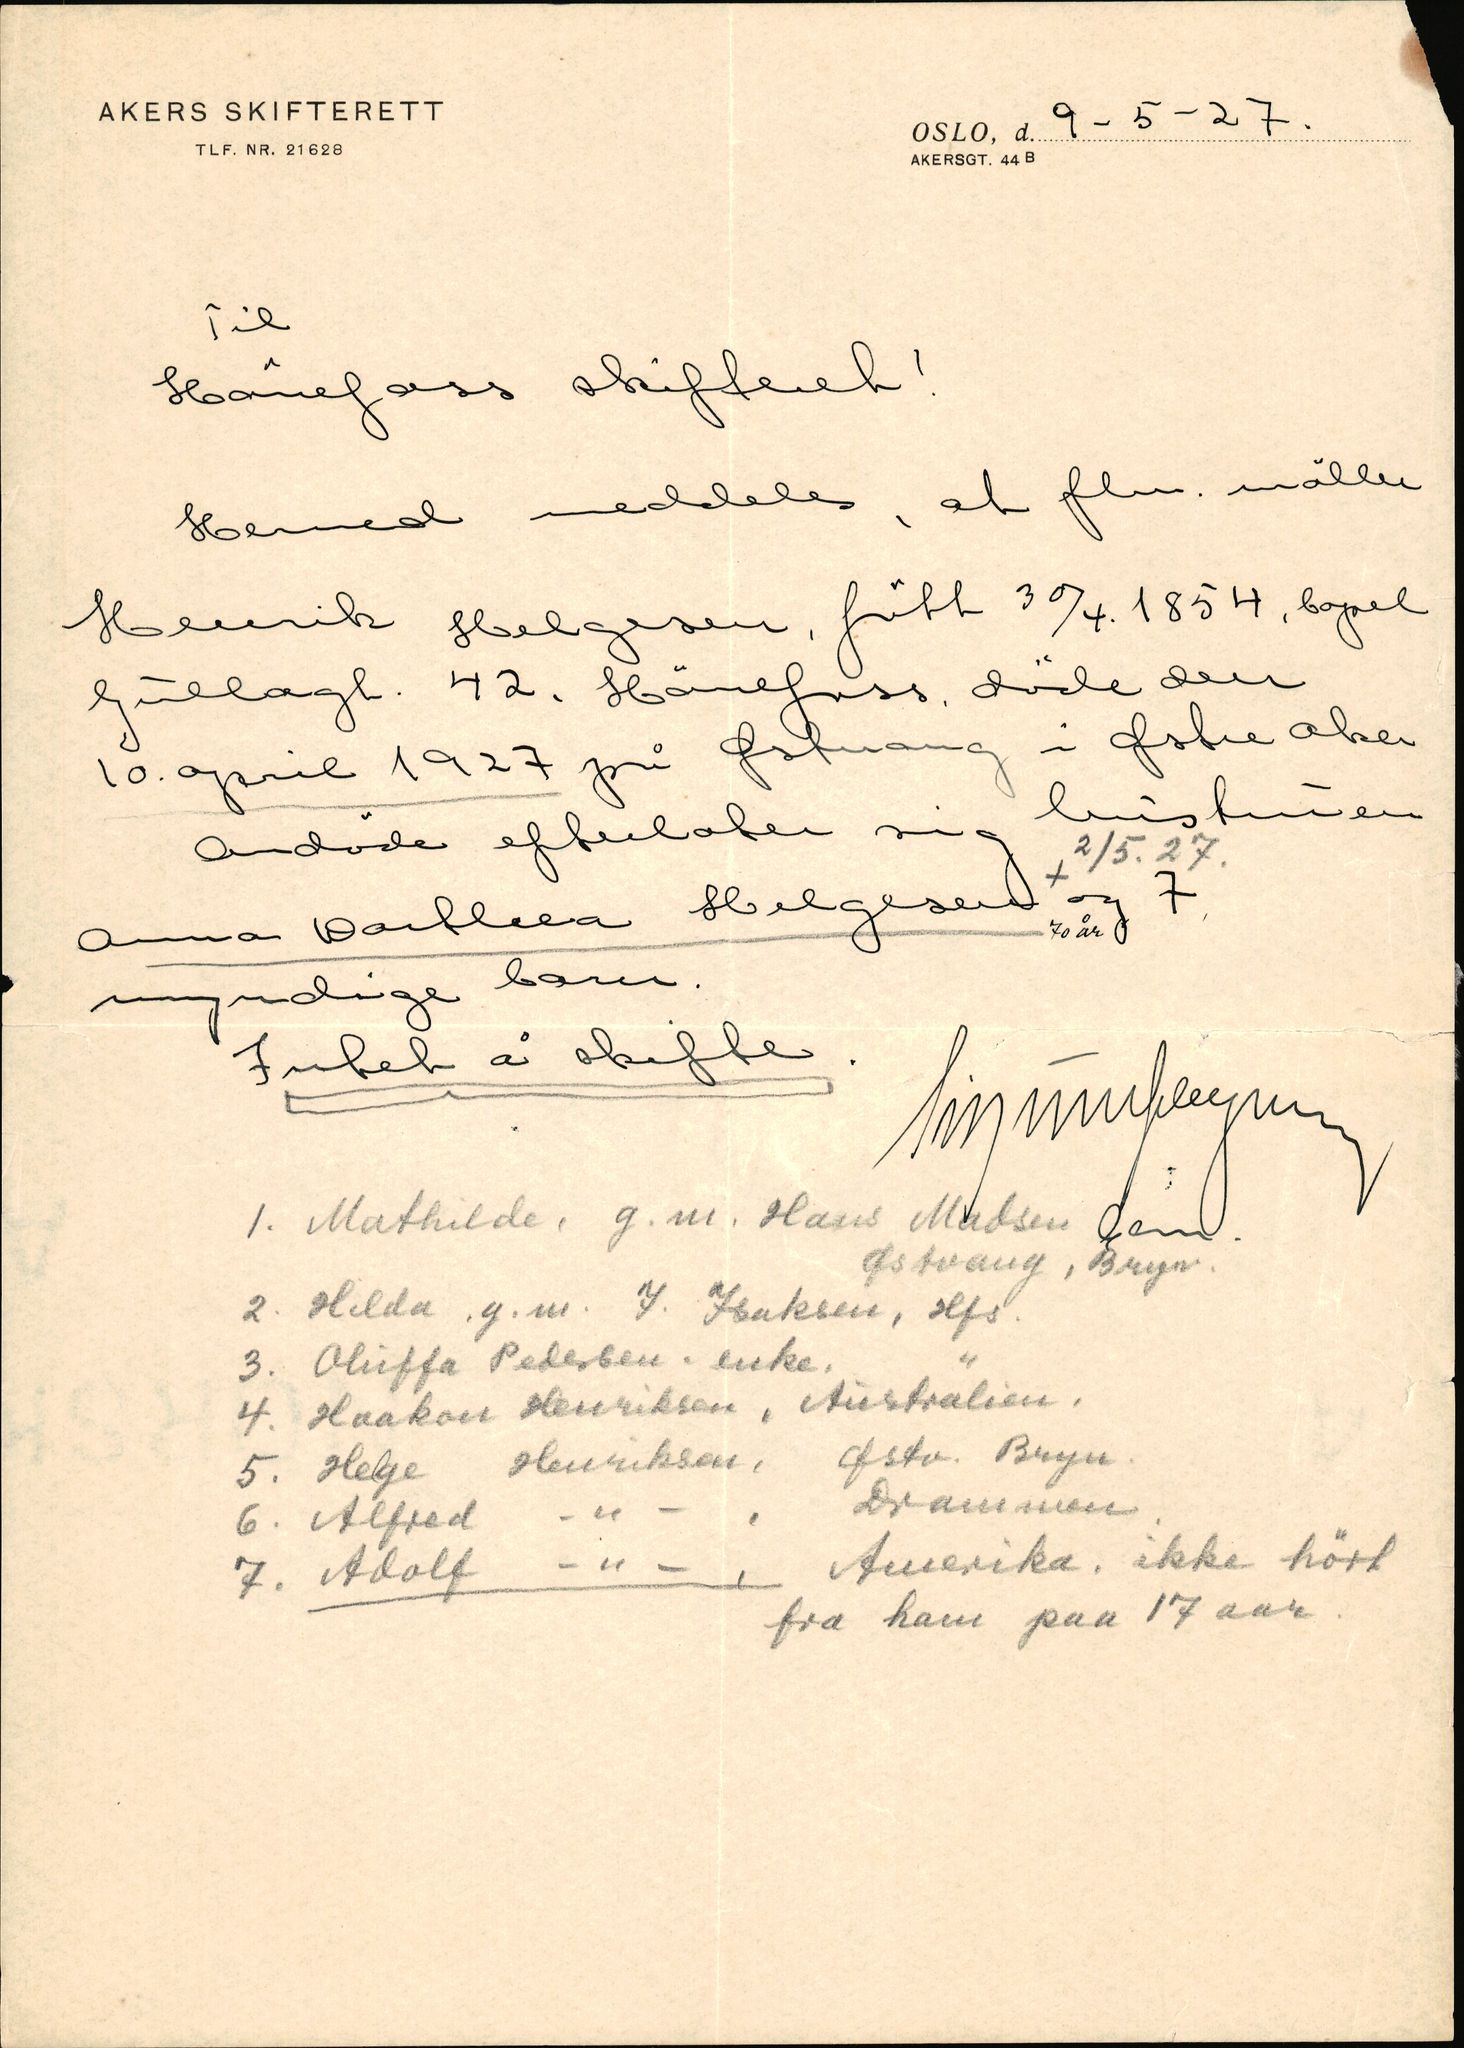 AKERS SKIFTERETT
TLF. NR. 21628
OSLO, d. 9-5-27.
AKERSGT. 44 B
Til
Hönefoss skifterett!
Hermed meddeles, at fhv. möller
Henrik Helgesen, födt 30/4. 1854, bopel
Gullagt. 42, Hönefoss, döde den
10. april 1927 på Østvang i Østre Aker
Avdöde efterlater sig hustruen
+ 2/5. 27.
Anna Dorthea Helgesen og 7
70 år
myndige barn.
Intet å skifte.
1. Mathilde, g. m. Hans Madsen
Østvang, Bryn.
2. Hilda g. m. I. Isaksen, Hfs.
3. Oluffa Pedersen. enke. "
4. Haakon Henriksen, Australien.
5. Helge Henriksen, Østv. Bryn.
6. Alfred -"- , Drammen.
7. Adolf -"- , Amerika. ikke hört
fra ham paa 17 aar.